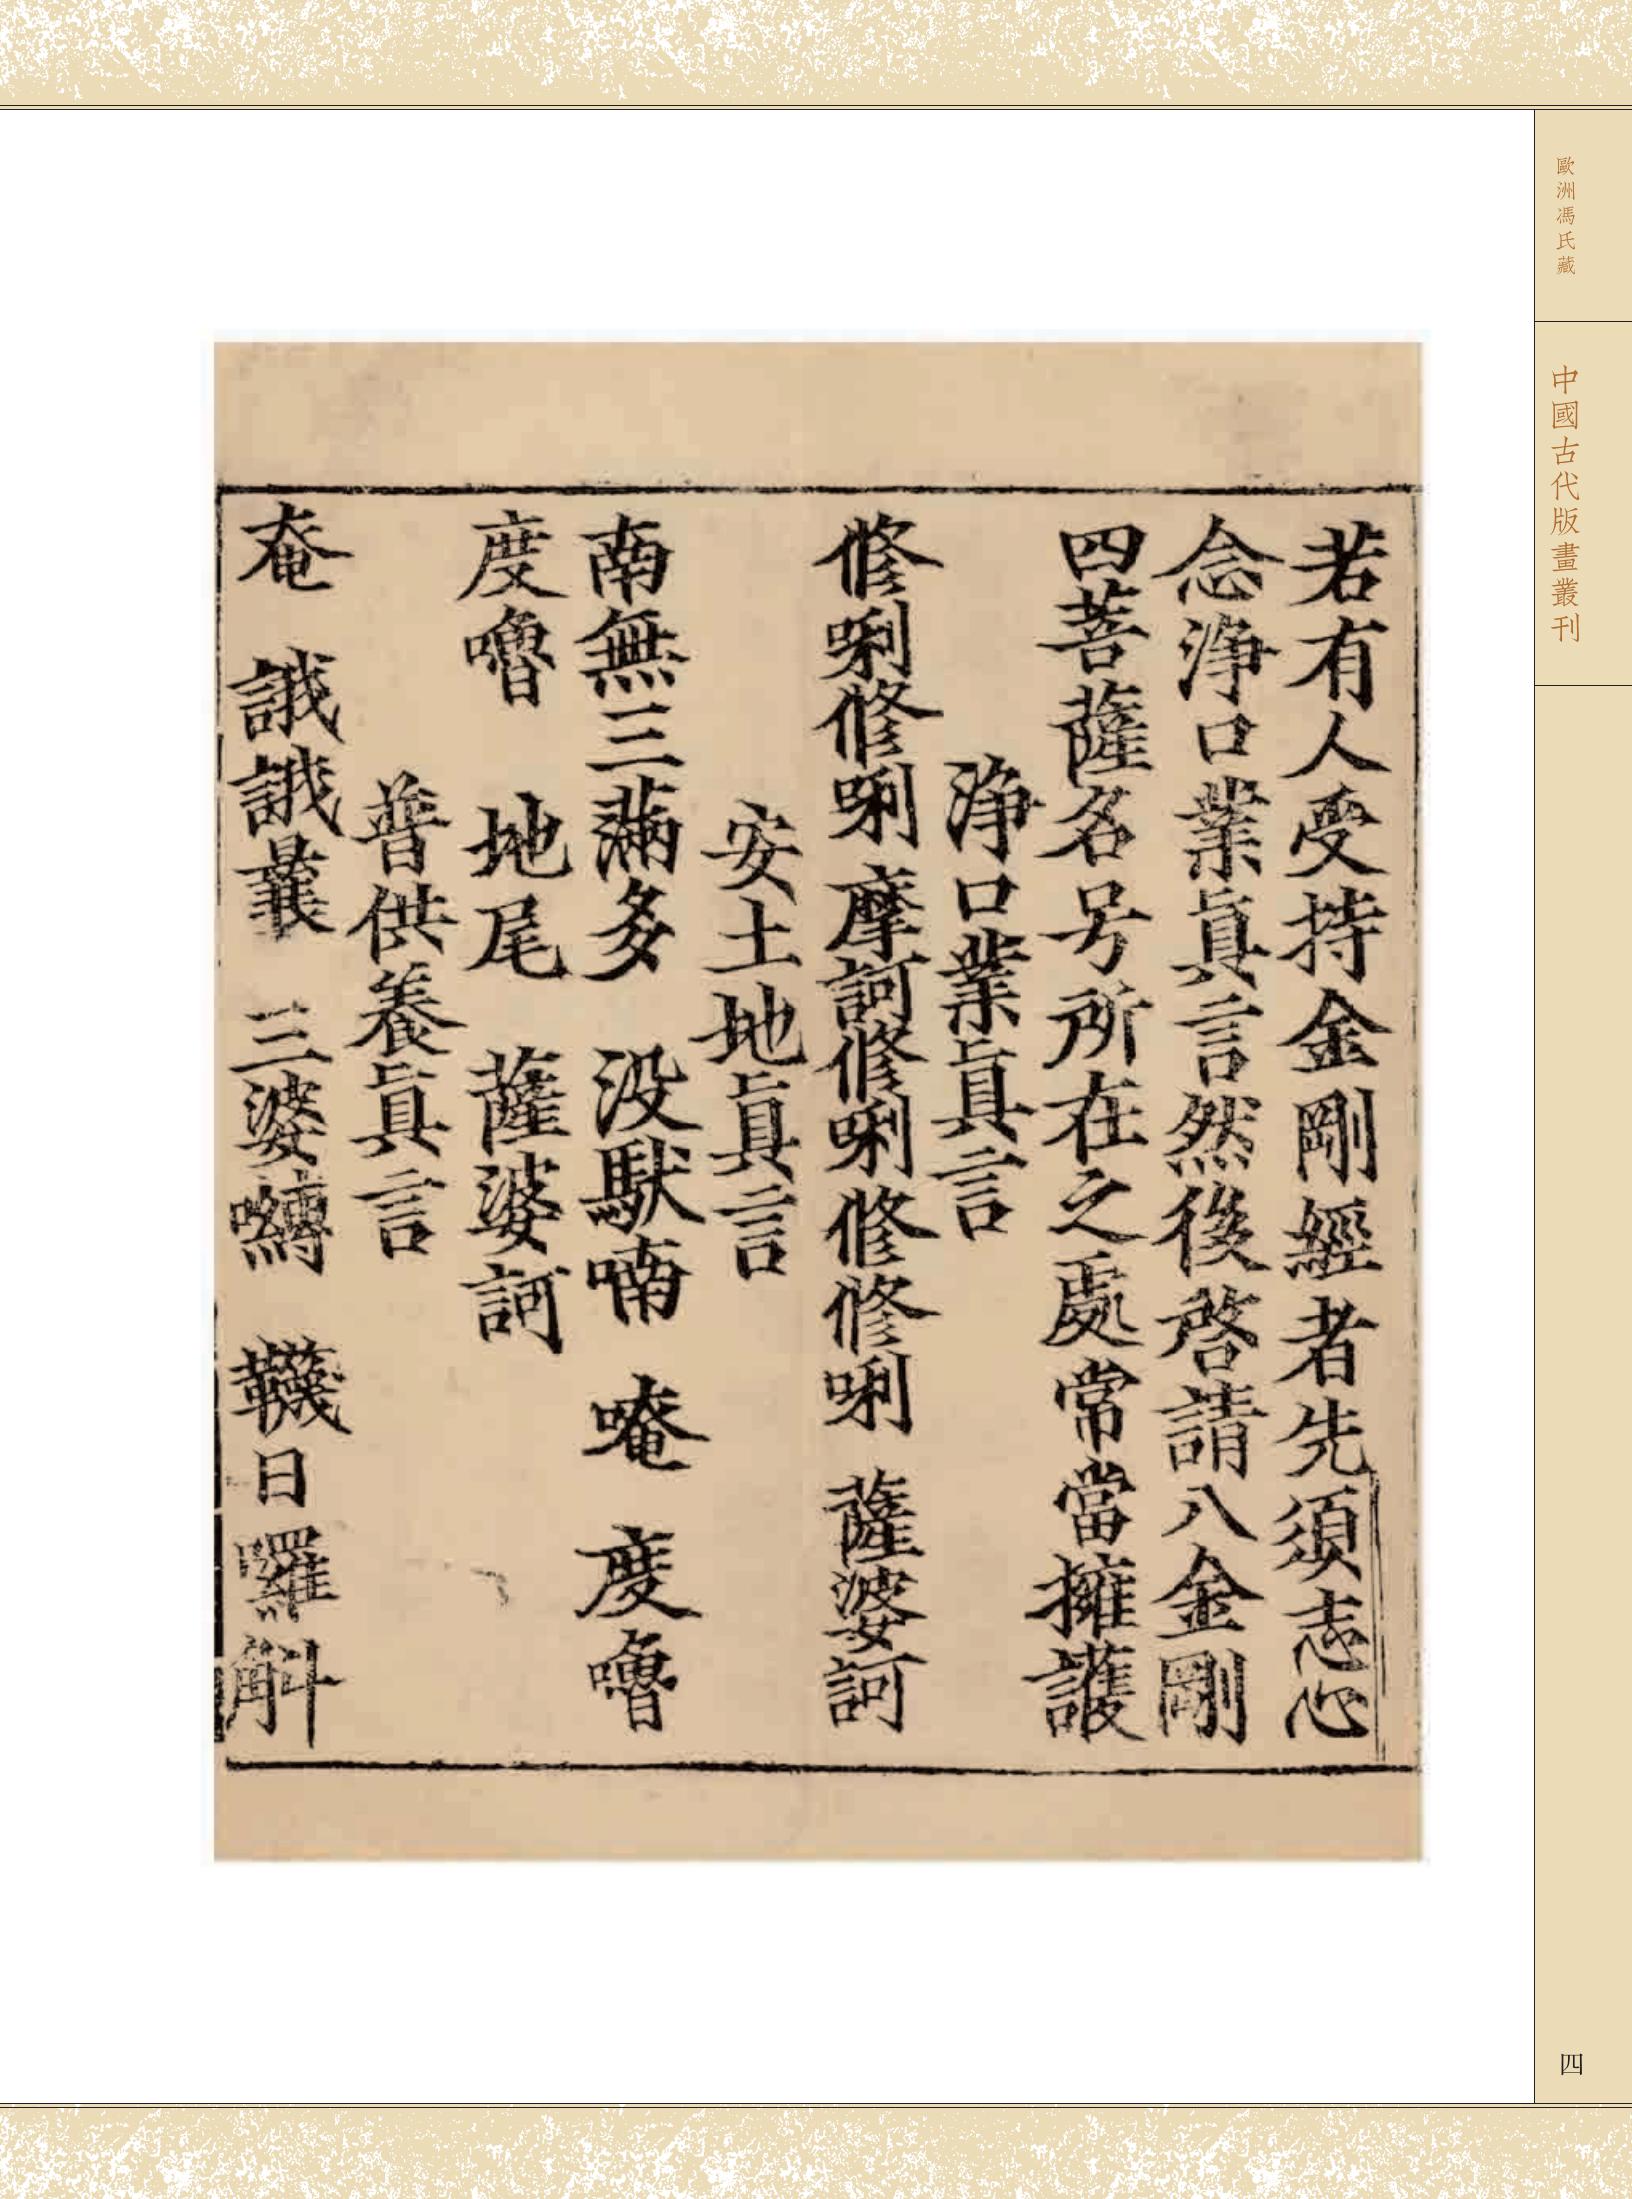 歐洲馮氏藏
中國古代版畫叢刊
若有人受持金剛經者先須志心
念淨口業眞言然後啓請八金剛
四菩薩名号所在之處常當擁護
淨口業眞言
修唎修唎 摩訶修唎 修修唎 薩婆訶
安土地眞言
南無三滿多 没馱喃 唵 度嚕
度嚕 地尾 薩婆訶
普供養眞言
奄 誐誐曩 三婆嚩 韈日囉斛
四